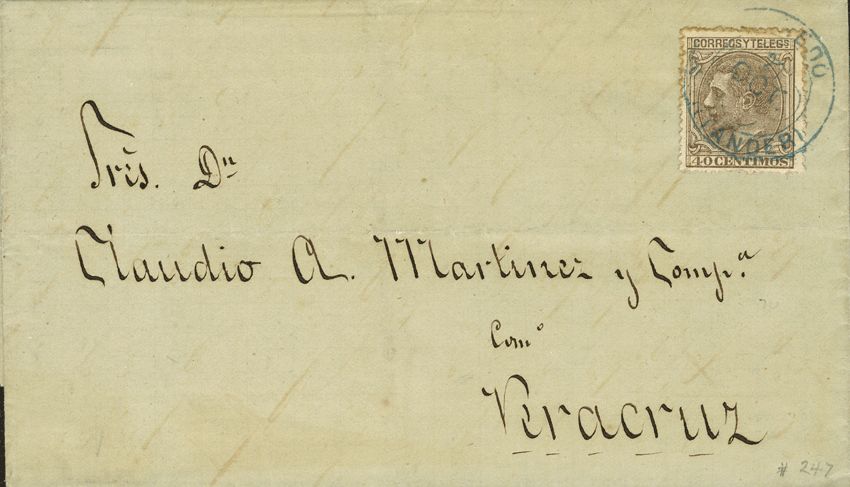 CORREOS Y TELEGS
OCT
40 CENTIMOS
Srés. Dn
Claudio A. Martinez y Comp.a
Veracruz
# 247